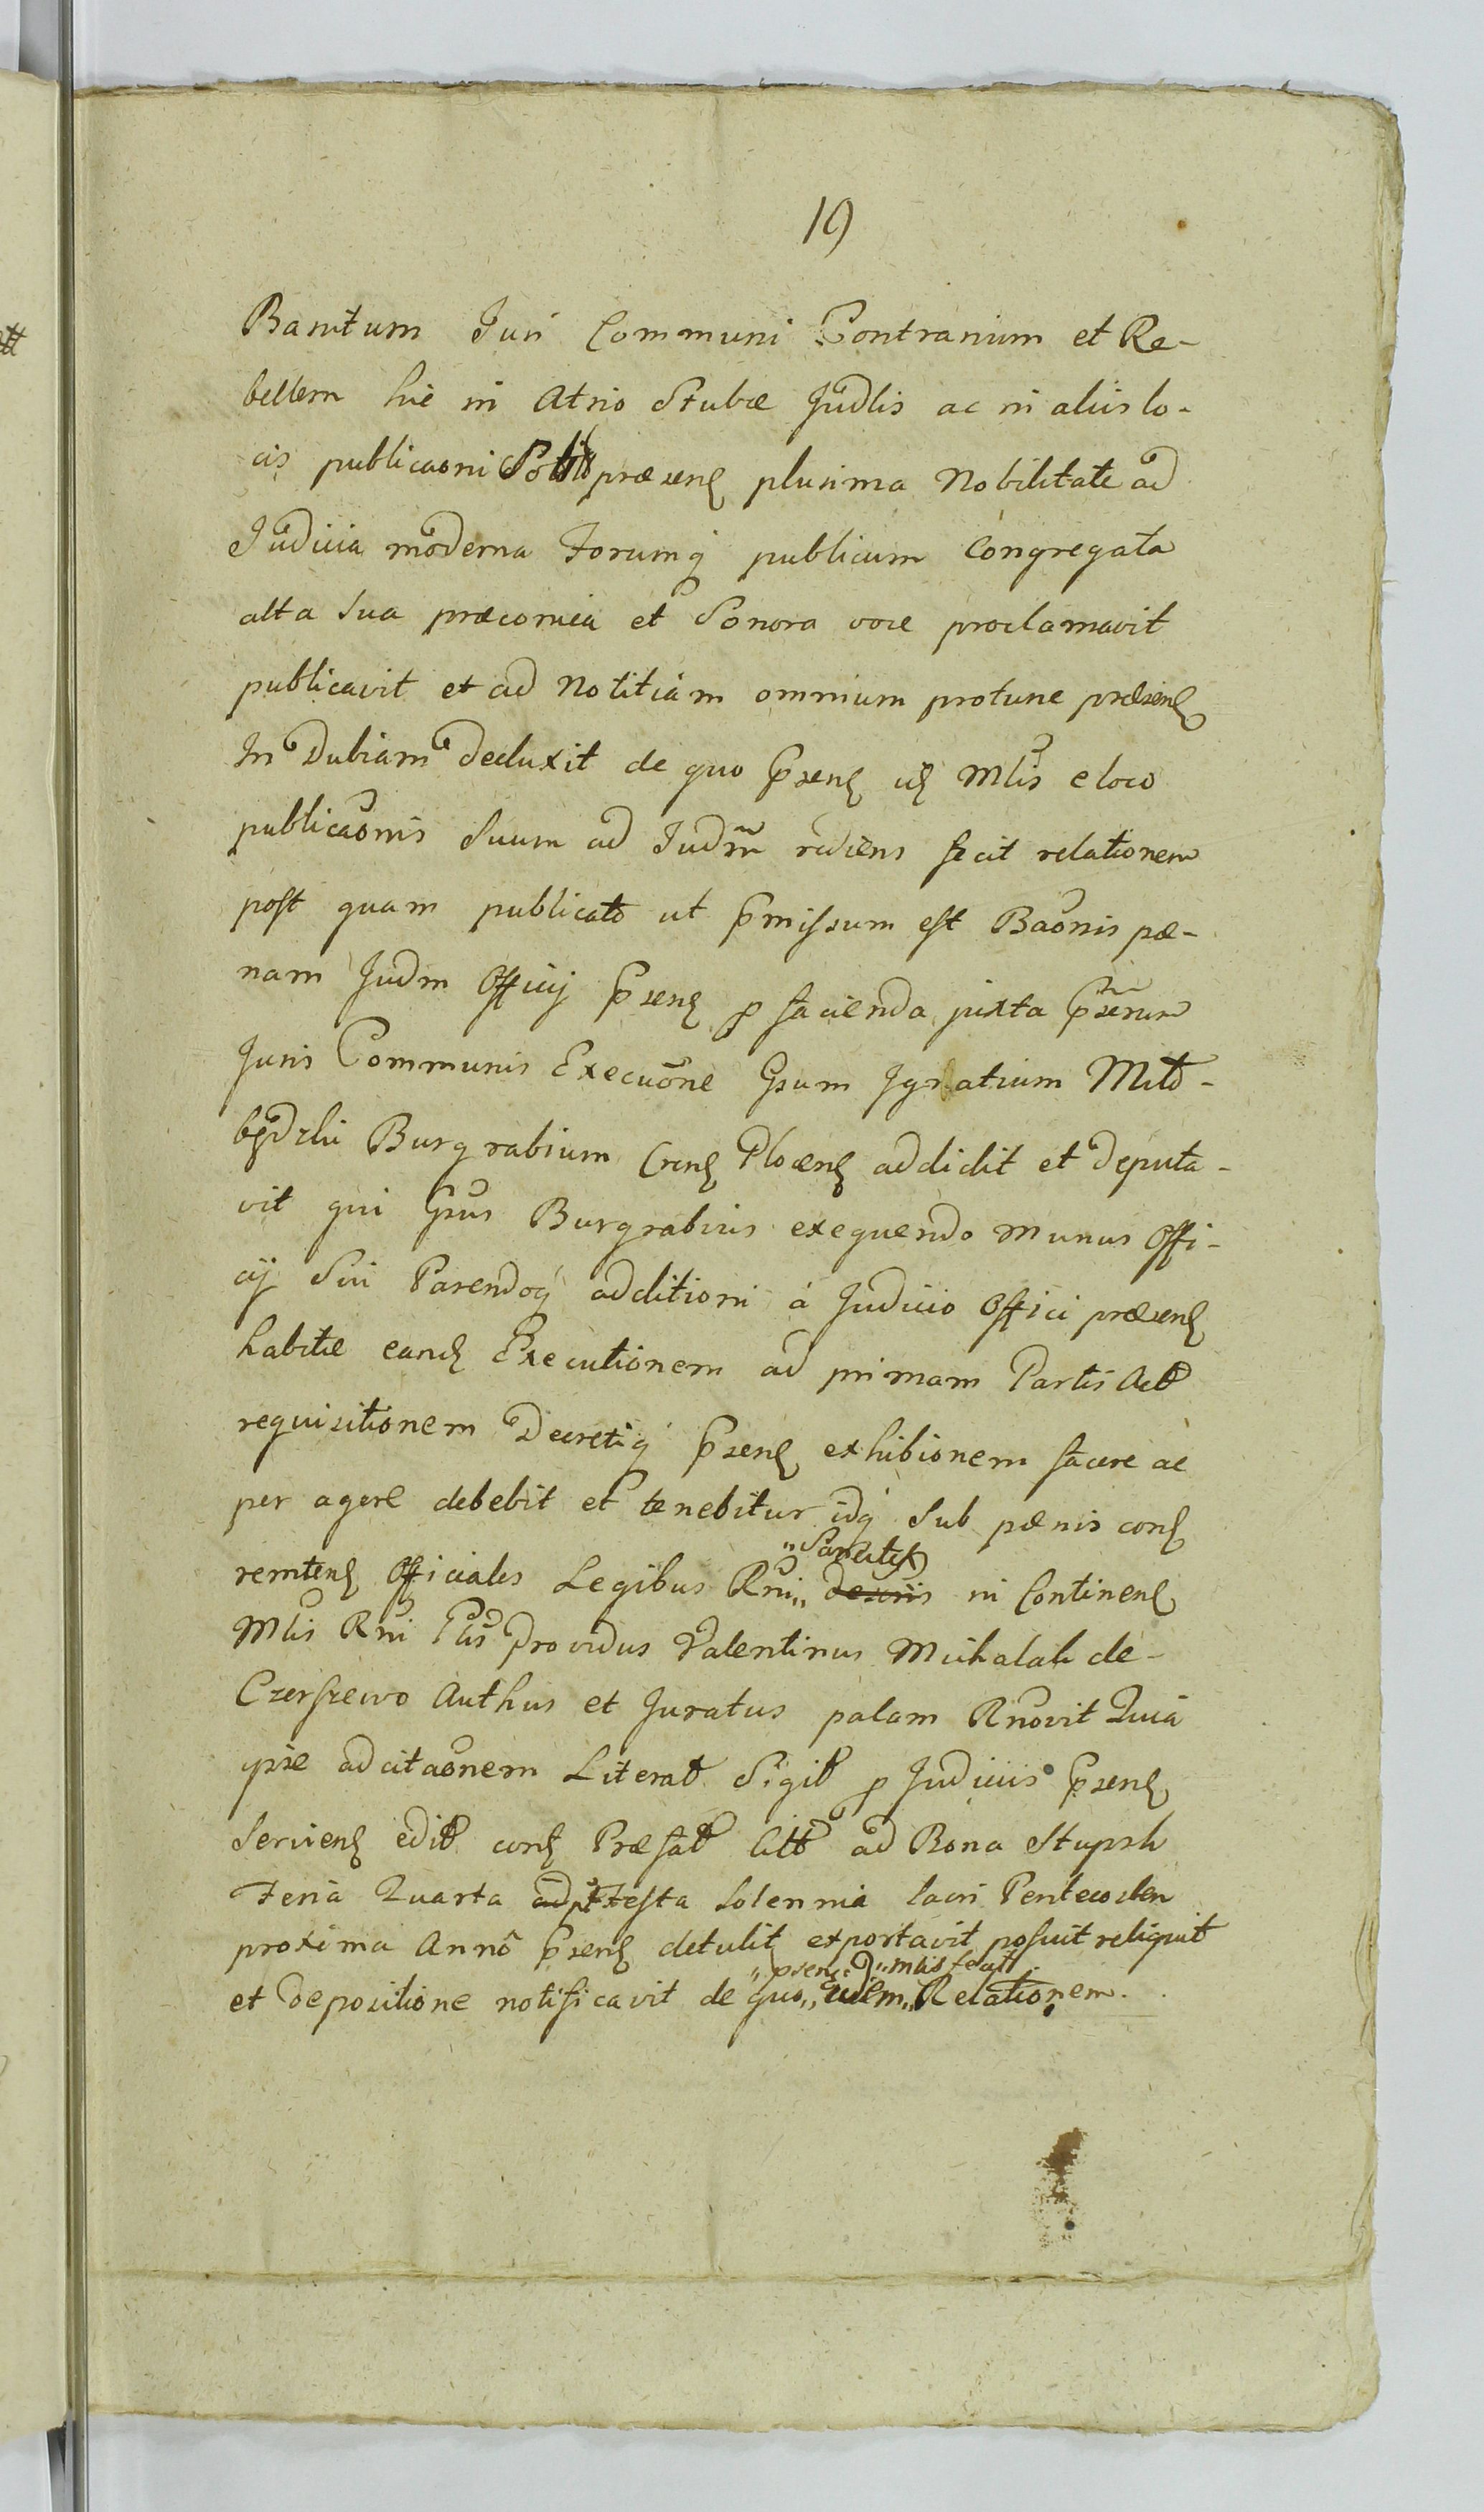 19
Banitum Juri Communi Contrarium et Re-
bellem hic in Atrio Stubæ Judlis ac in aliis lo-
cis publicaoni præsenꝭ plurima Nobilitate ad
Judicia moderna Forumqꝫ publicum Congregata
alta Sua præconica et Sonora voce proclamavit
publicavit et ad Notitiam omnium protunc præsenꝭ
In Dubiam deduxit de quo p̃senꝭ idꝭ Mlis e loco
publicaõnis Suum ad Judm̃ rediens fecit relationem
post quam publicatō ut p̃missum est Baõnis pæ-
nam Judm Officij p̃senꝭ ꝑ facienda juxta p̃scriptum
Juris Communis Execuõne Gsum Ignatium Mito-
będzki Burgrabium Crenꝭ Plocenꝭ addidit et deputa-
vit qui Gsus Burgrabius exequendo munus Offi-
cij Sui Parendoqꝫ additioni à Judicio Offici præsenꝭ
habitæ eandꝭ Executionem ad primam Partis Act
requisitionem Decretiqꝫ p̃senꝭ exhibionem facere ac
per agere debebit et tenebitur idqꝫ Sub pænis conꝭ
„Sancitꝭ
remtenꝭ Officiales Legibus Rni„ in Continenꝭ
Mlis Rni Glis Providus Valentinus Michalak de-
Czerszewo Authus et Juratus palam Rnovit Quia
ipse ad citaõnem Literat Sigil ꝑ Judiciis p̃senꝭ
Servienꝭ edit conꝭ Præfat Citt ad Bona Stupsk
Feria Quarta pt Festa Solennia Sacri Pentecosten
proxima Annô p̃senꝭ detulit exportavit posuit reliquit
„psenꝭ„ „mlis fecit
et depositione notificavit de quo„ idem„ Relationem.